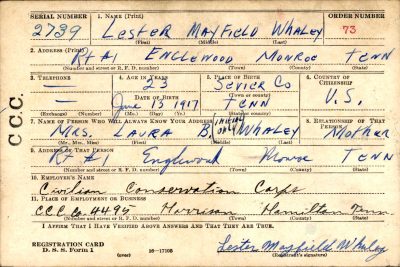 SERIAL NUMBER 1. NAME (Print) ORDER NUMBER
2739 LESTER MAYFIELD WHALEY 73
(First) (Middle) (Last)
2. ADDRESS (Print)
Rt #1 ENGLEWOOD MONROE TENN
(Number and street or R. F. D. number) (Town) (County) (State)
3. TELEPHONE 4. AGE IN YEARS 5. PLACE OF BIRTH 6. COUNTRY OF CITIZENSHIP
— 23 SEVIER Co
DATE OF BIRTH (Town or county)
— June 13 1917 TENN U.S.
(Exchange) (Number) (Mo.) (Day) (Yr.) (State or country)
7. NAME OF PERSON WHO WILL ALWAYS KNOW YOUR ADDRESS 8. RELATIONSHIP OF THAT PERSON
MRS. LAURA B. (INITIAL ONLY) WHALEY Mother
(Mr., Mrs., Miss) (First) (Middle) (Last)
9. ADDRESS OF THAT PERSON
Rt #1 Englewood Monroe TENN
(Number and street or R. F. D. number) (Town) (County) (State)
10. EMPLOYER'S NAME
Civilian Conservation Corps
11. PLACE OF EMPLOYMENT OR BUSINESS
CCC Co. 4495 Harrison Hamilton Tenn
(Number and street or R. F. D. number) (Town) (County) (State)
I AFFIRM THAT I HAVE VERIFIED ABOVE ANSWERS AND THAT THEY ARE TRUE.
REGISTRATION CARD
D. S. S. Form 1 (over) 16—17105 Lester Mayfield Whaley
(Registrant's signature)
C.C.C.